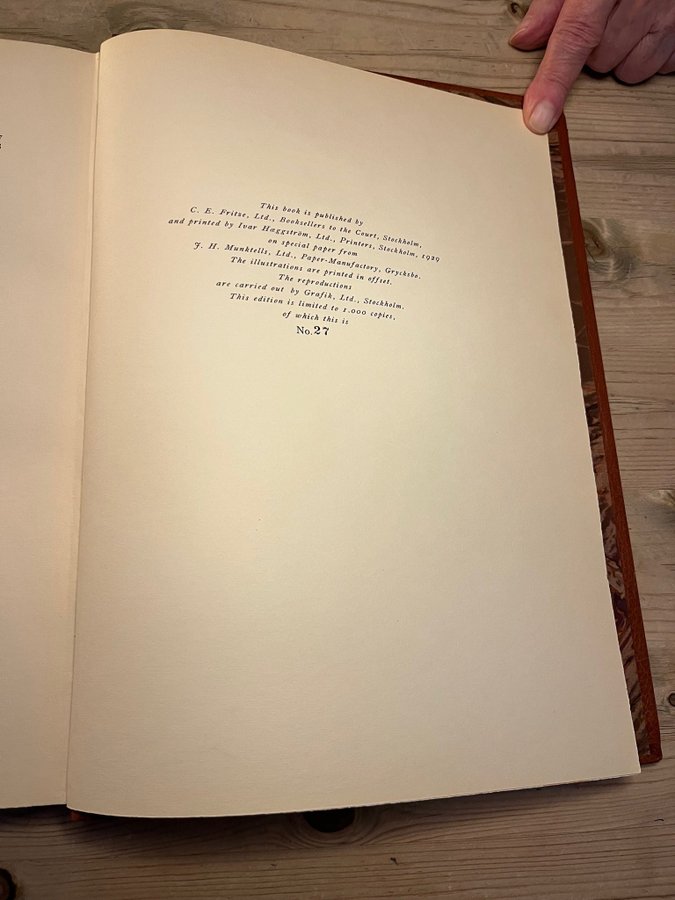 This book is published by
C. E. Fritze, Ltd., Booksellers to the Court, Stockholm,
and printed by Ivar Hæggström, Ltd., Printers, Stockholm, 1929
on special paper from
J. H. Munktells, Ltd., Paper-Manufactory, Grycksbo.
The illustrations are printed in offset.
The reproductions
are carried out by Grafik, Ltd., Stockholm.
This edition is limited to 1.000 copies,
of which this is
No. 27